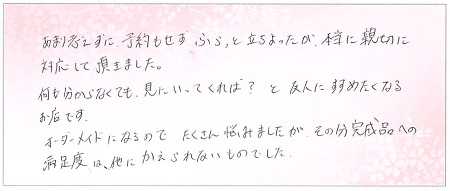 あまり考えずに、予約もせずふらっと立ちよったが、本当に親切に
対応して頂きました。
何も分からなくても、見にいってくれば？と友人にすすめたくなる
お店です。
オーダーメイドになるので たくさん悩みましたが、その分完成品への
満足度は、他にかえられないものでした。